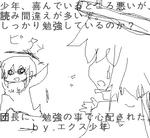 少年、喜んでいるところ悪いが、
読み間違えが多いぞ。
しっかり勉強しているのか?
団長に、勉強の事で心配された
by.エクス少年